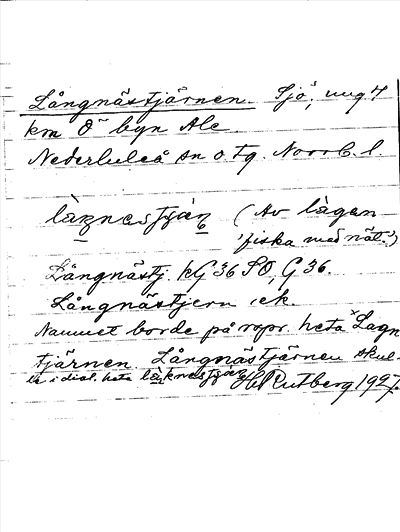 Långnästjärnen. Sjö, ung 7
km Ö byn Ale
Nederluleå sn o. tg. Norrb. l.
làgnestjàn (Av lågen
'fiska med nät.')
Långnästj. kG 36 SO, G 36.
Långnästjern ek.
Namnet borde på rspr. heta *Lagn
tjärnen. Långnästjärnen skul-
le i dial. heta làknestjàn. Hd Rutberg 1927.